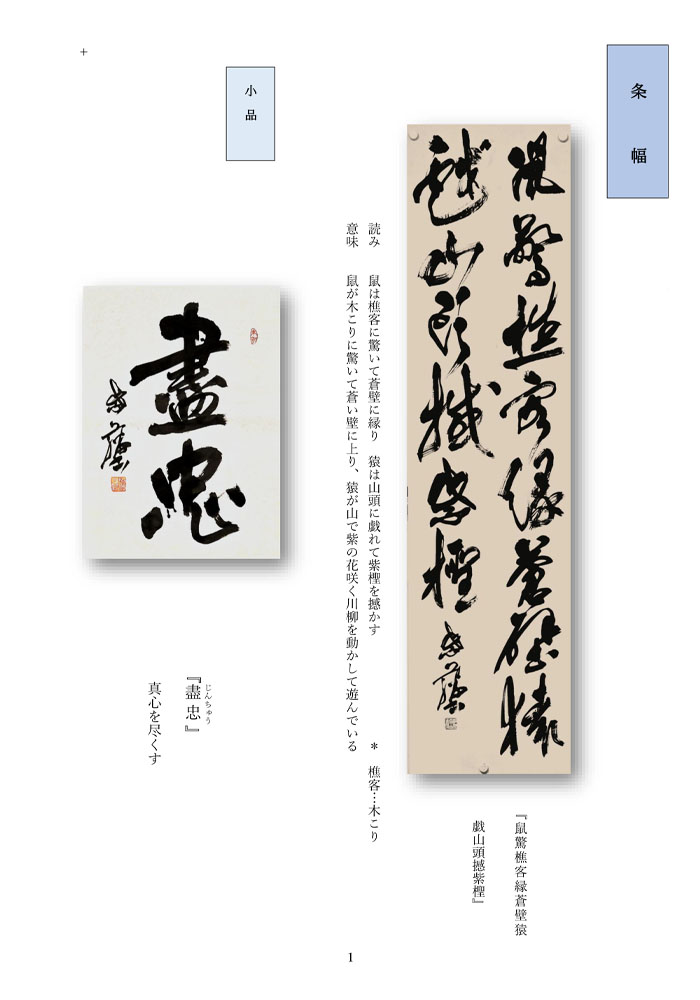 条幅
鼠驚樵客縁蒼壁猿
戯山頭撼紫檉
『鼠驚樵客縁蒼壁猿
戯山頭撼紫檉』
読み　鼠は樵客に驚いて蒼壁に縁り　猿は山頭に戯れて紫檉を撼かす　＊　樵客…木こり
意味　鼠が木こりに驚いて蒼い壁に上り、猿が山で紫の花咲く川柳を動かして遊んでいる
小品
盡忠
『盡忠』
じんちゅう
真心を尽くす
+
1